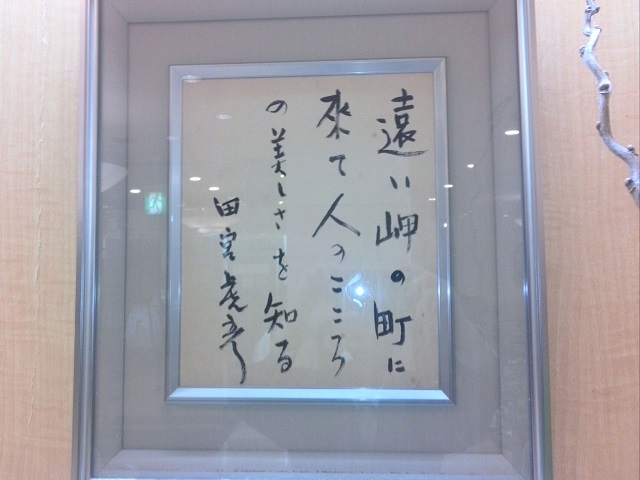 遠い岬の町に
来て人のこころ
の美しさを知る
田宮虎彦